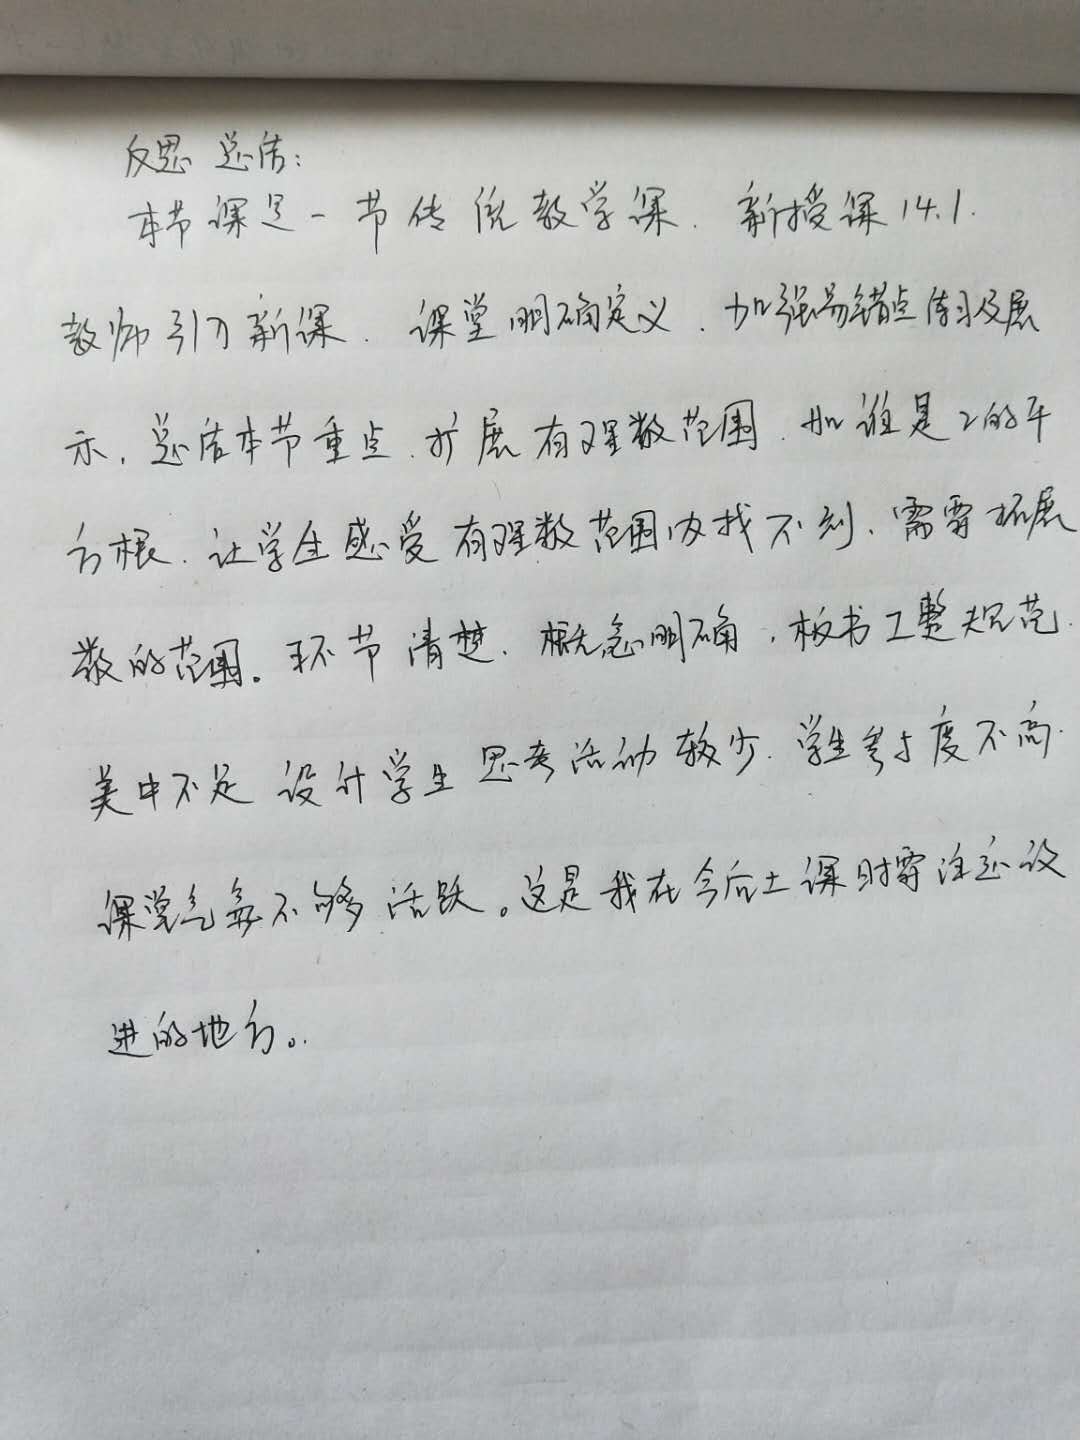 反思总结：
本节课是一节传统教学课．新授课14.1．
教师引入新课．课堂明确定义．加强易错点练习及展
示．总结本节重点．扩展有理数范围．如谁是2的平
方根．让学生感受有理数范围内找不到．需要拓展
数的范围。环节清楚．概念明确，板书工整规范．
美中不足 设计学生思考活动较少．学生参与度不高．
课堂气氛不够活跃。这是我在今后上课时需注意改
进的地方。